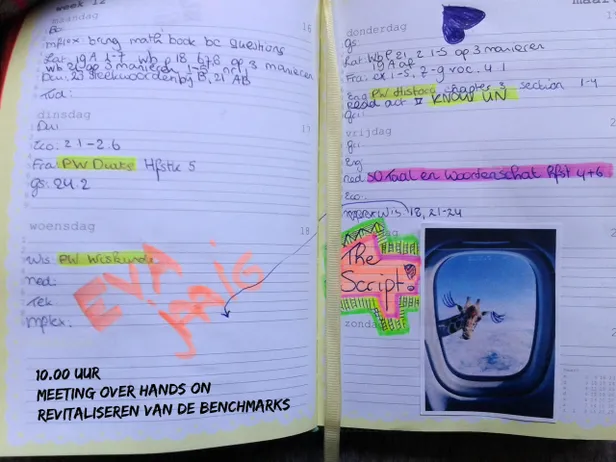 week 12
maandag 16
mplex bring math book bc questions
Lat 19A 1-7 wb p 18 b+8 op 3 manieren
wb 21 op 3 manieren
steekwoorden B, 21 AB
dinsdag 17
Du
Eco: 2.1-2.6
Fra: PW Duits Hfstk 5
gs: 24.2
woensdag 18
Wis PW Wiskunde
ned.
Tek
mplex.
EVA
JARIG
10.00 UUR
MEETING OVER HANDS ON
REVITALISEREN VAN DE BENCHMARKS
maart
donderdag
gs:
Lat Wb P 21, 2 1-5 op 3 manieren
19A af
Fra: ex 1-5, 7-9 voc. 41
Eng PW History chapter 3 section 1-4
Read act II KNOW UN
vrijdag
Eng
ned SO Taal en Woordenschat Hfst 4+6
Eco:
Wis 18, 21-24
The
Script!
zondag